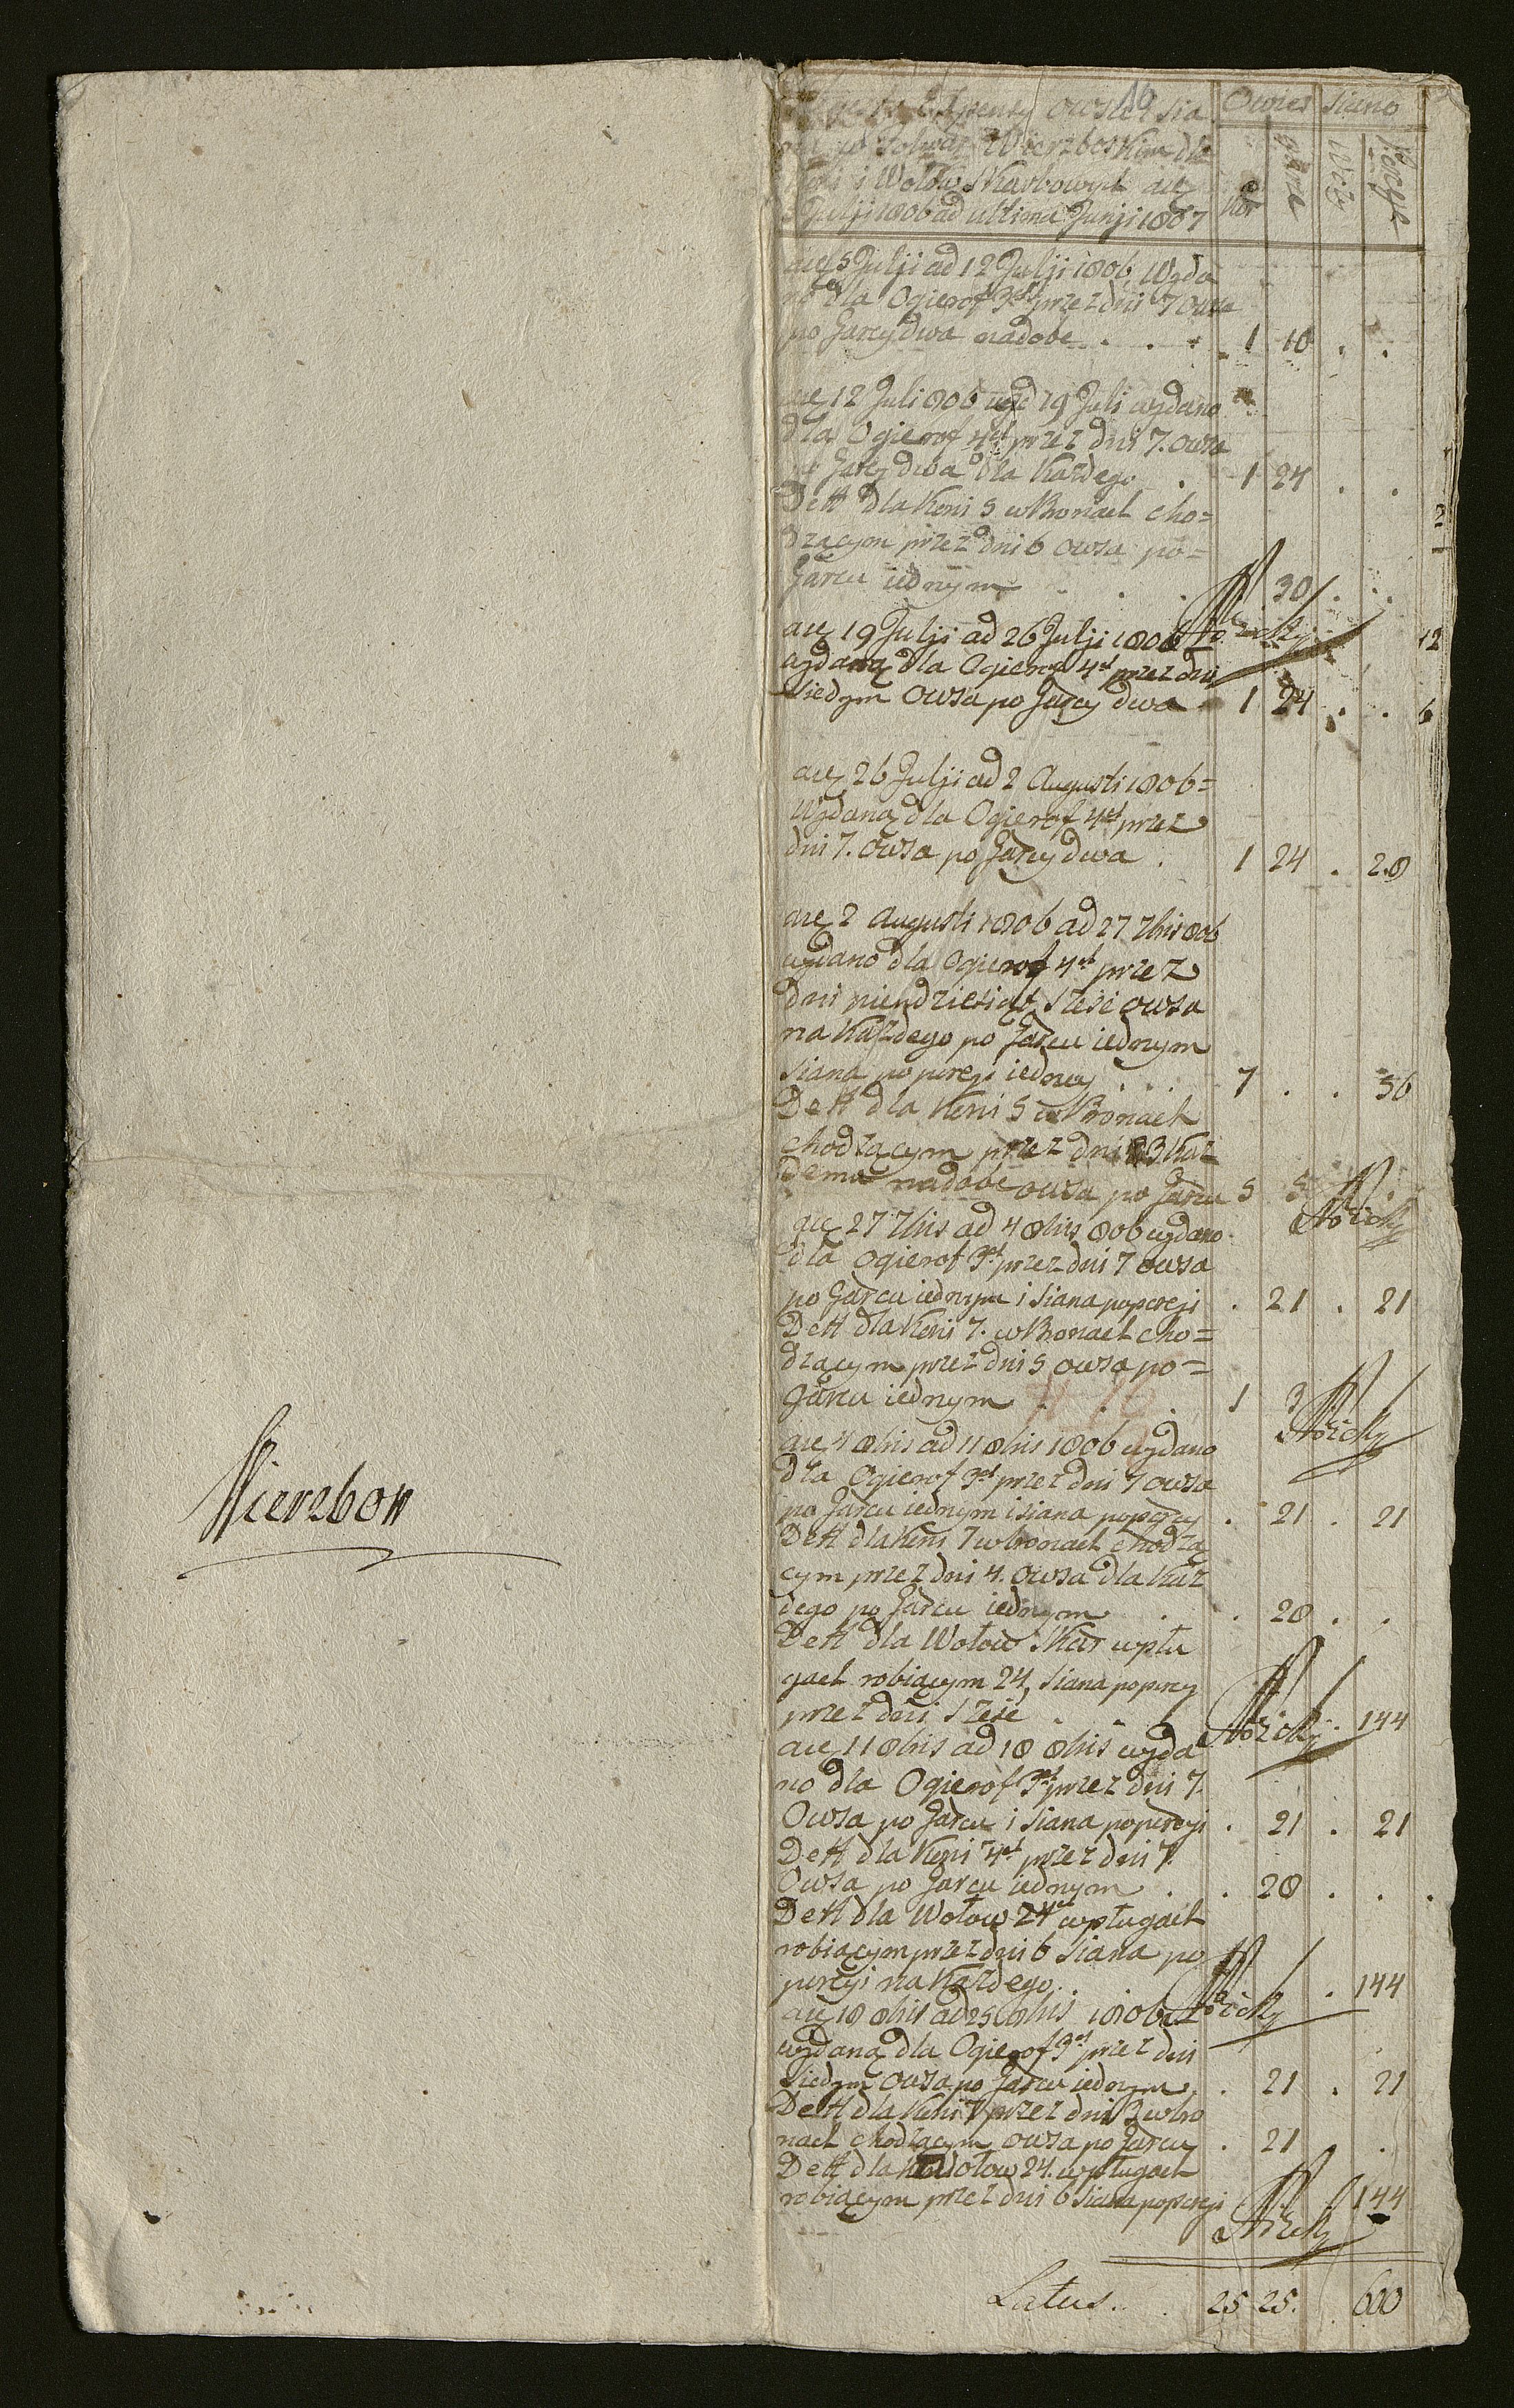 Wierzbow
10
Expensy Owsa i sia
na w Folwar: Wierzboskim dla
Koni i Wołow Skarbowych a die
5 Julji 1806 ad ultima Junji 1807
Owies Siano
Kor garce Wozy Porcye
a die 5 Julji ad 12 Julji 1806, Wyda
no dla Ogierof 3ch przez dni 7 owsa
po Garcy dwa nadobę . . . 1 10 . .
a die 12 Juli 806 ad 19 Juli wydano
dla Ogierof 4ch przez dni 7. owsa
po Garcy dwa dla Każdego . 1 24 . .
Dett dla Koni 5 w Bronach cho=
dzącym przez dni 6 owsa po=
Garcu iednym . . . 30 . .
a die 19 Julji ad 26 Julji 1806
wydano dla Ogierof 4ch przez dni
siedym Owsa po Garcy dwa 1 24 . .
12
6
a die 26 Julji ad 2 Augusti 1806=
Wydano dla Ogierof 4ch przez
dni 7. Owsa po Garcy dwa . 1 24 . 28
a die 2 Augusti 1806 ad 27 7bris 806
wydano dla Ogierof 4ch przez
dni piendziesiąt sześć owsa
na Każdego po Garcu iednym
siana po porcji iedney . . . 7 . . 56
Dett dla Koni 5 w Bronach
chodzącym przez dni 33 Każ
demu nadobe owsa po Garcu 5 5
a die 27 7bris ad 4 8bris 806 wydano
dla Ogierof 3ch przez dni 7 owsa
po Garcu iednym i siana po porcji . 21 . 21
Dett dla Koni 7. w Bronach cho=
dzącym przez dni 5 owsa po=
garcu iednym . . . 1 3
a die 4 8bris ad 11 8bris 1806 wydano
dla Ogierof 3ch przez dni 7 owsa
po Garcu iednym i siana po porcy . 21 . 21
Dett dla Koni 7 w bronach chodzą
cym przez dni 4. owsa dla Każ
dego po Garcu iednym . . 28 . .
Dett dla Wołow Skar w płu
gach robiącym 24, siana po porcy
przez dni sześć . . . 144
a die 11 8bris ad 18 8bris wyda
no dla Ogierof 3ch przez dni 7.
Owsa po Garcu i siana po porcyi . 21 . 21
Dett dla Koni 4ch przez dni 7.
Owsa po Garcu iednym . . 28 . . .
Dett dla Wołow 24 w pługach
robiącym przez dni 6 siana po
porcyi na Każdego . . . 144
a die 18 8bris ad 25 8bris 1806
wydano dla Ogierof 3ch przez dni
siedym owsa po Garcu iednym . 21 . 21
Dett dla Koni 7 przez dni 3 w bro
nach chodzącym owsa po Garcu . 21 .
Dett dla Wołow 24. w pługach
robiącym przez dni 6 siana po porcji 144
Latus . . 25 25. 600